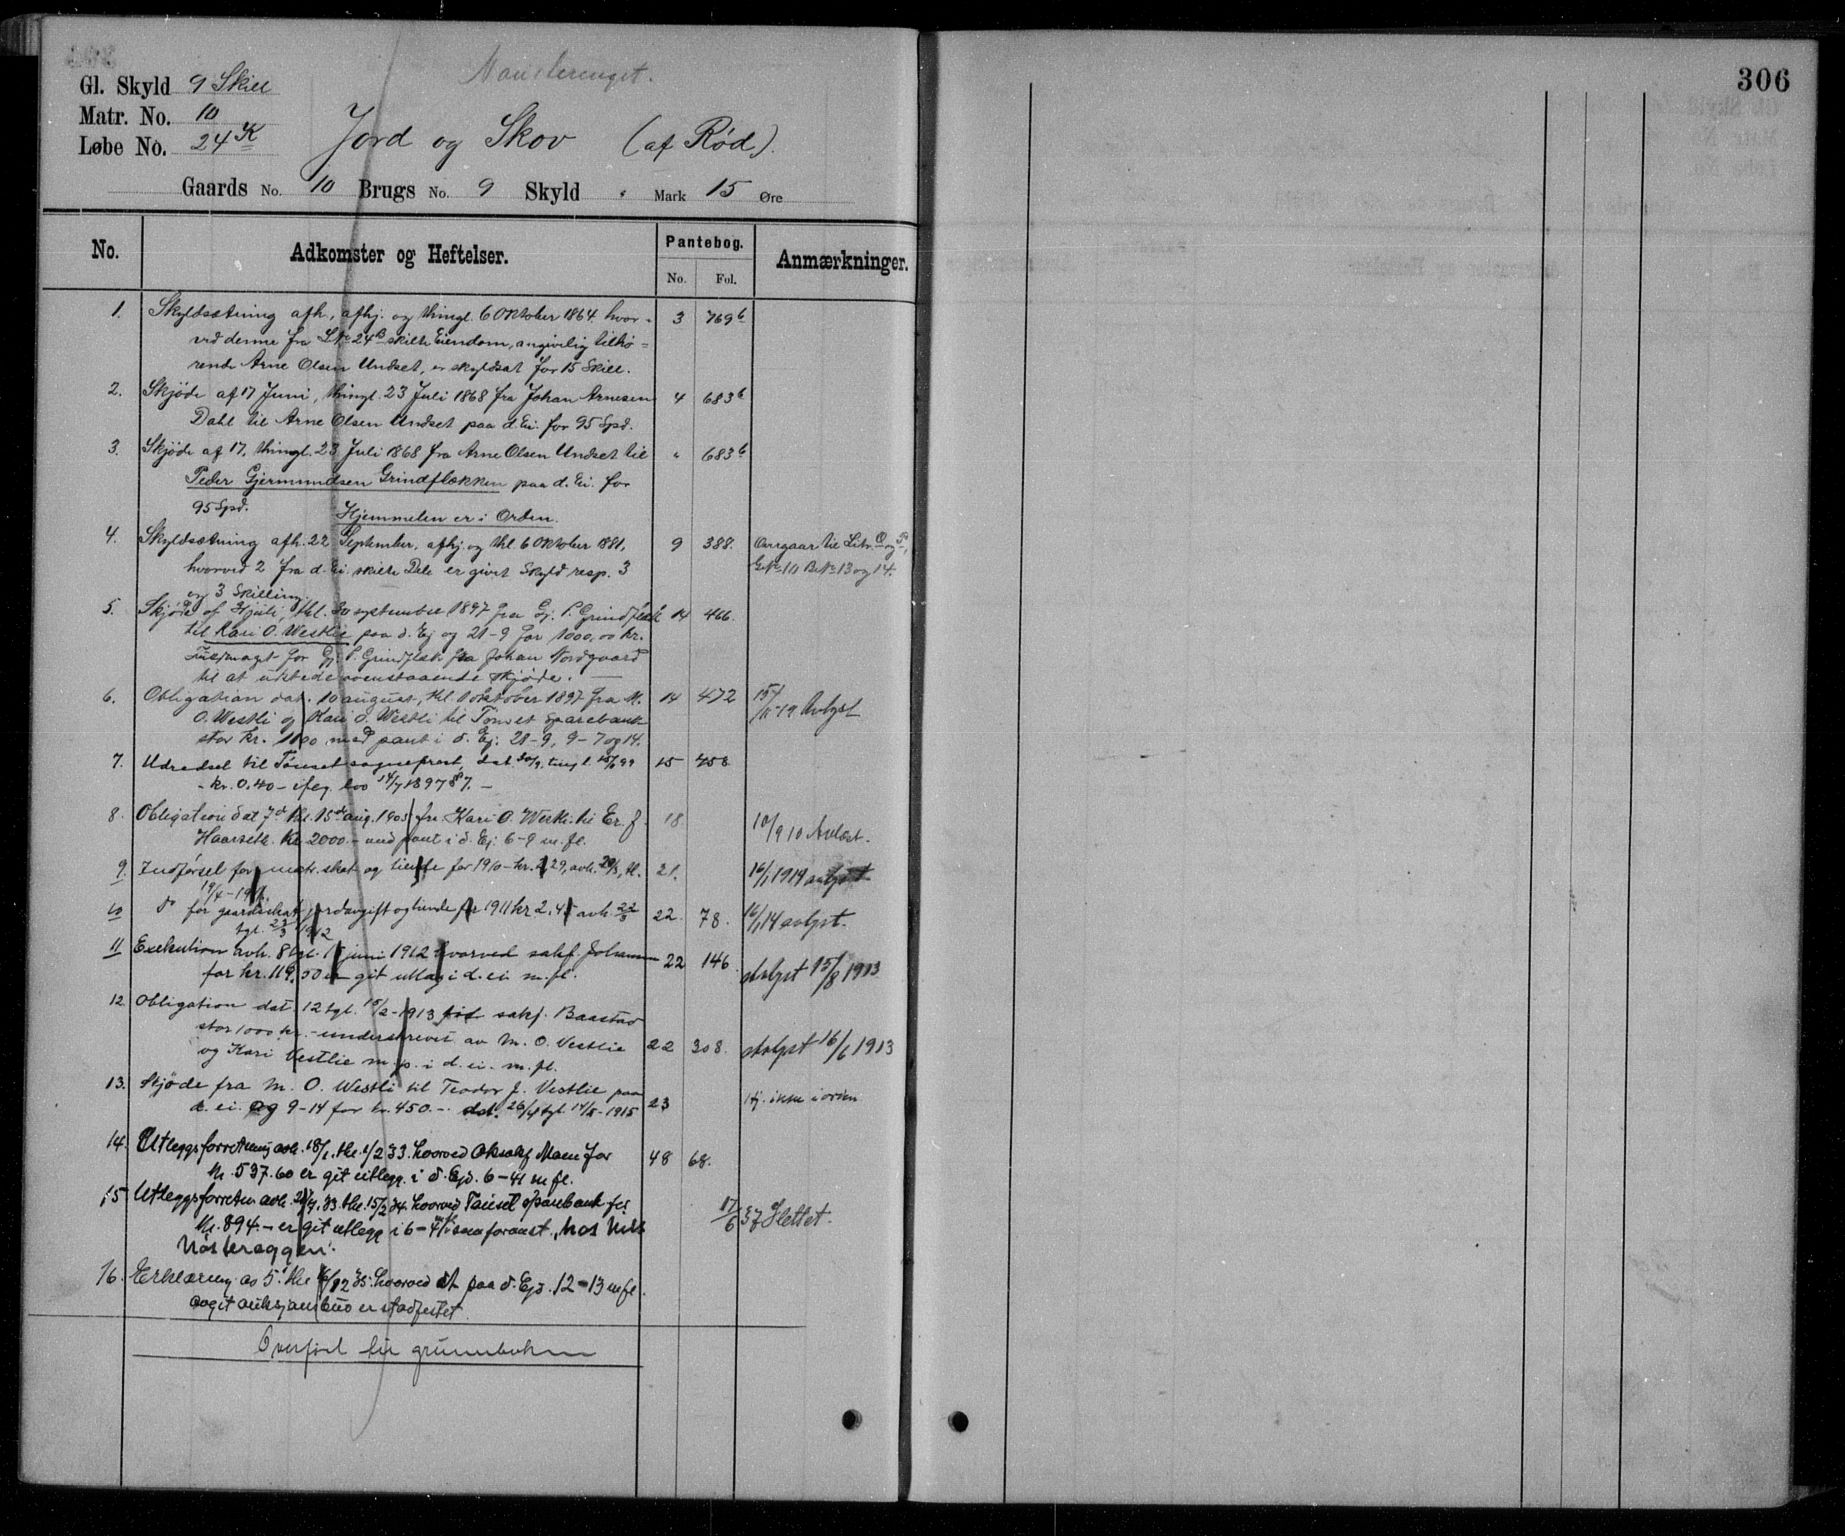 306
Gl. Skyld 9 Skill
Matr. No. 10
Løbe No. 24 K
Jord og Skov (af Rød).
Gaards No. 10 Brugs No. 9 Skyld " Mark 15 Øre
No. Adkomster og Heftelser. Pantebog. Anmærkninger.
No. Fol.
1. Skyldsætning afh., afhj. og thingl. 6 Oktober 1864 hvor- 3 769b
ved denne fra LNo 24B skilte Eiendom, angivelig tilhø-
rende Arne Olsen Undset, er skyldsat for 15 Skill.
2. Skjøde af 17 Juni, thingl. 23 Juli 1868 fra Johan Arnesen 4 683b
Dahl til Arne Olsen Undset paa d. Ei. for 95 Spd.
3. Skjøde af 17, thingl. 23 Juli 1868 fra Arne Olsen Undset til " 683b
Peder Gjermundsen Grindflækken paa d. Ei. for
95 Spd. Hjemmelen er i Orden.
4. Skyldsætning afh. 22 September, afhj. og thl. 6 Oktober 1881, 9 388. Overgaar til Litr. O og P,
hvorved 2 fra d. Ei. skilte Dele er givet Skyld resp. 3 GNo 10 BNo 13 og 14.
og 3 Skilling.
5. Skjøde af juli, thl. 30 september 1897 fra Gj. P. Grindflæk 14 466.
til Kari O. Westlie paa d. Ej og 21-9 for 1000,00 kr.
Fuldmagt for Gj. P. Grindflæk fra Johan Nordgaard
til at udstede ovenstaaende skjøde.
6. Obligation dat. 10 august, thl. 1 oktober 1897 fra M. 14 472 15/11-19 Avlyst
O. Westli og Kari O. Westli til Tønset Sparebank
stor kr. 1100 med pant i d. Ej. 21-9, 9-7 og 14.
7. Udredsel til Tønset sogneprest, dat 30/9, tingl. 15/6 99 15 458
- kr. 0.40 - iføg. lov 14/7 1897 §7. -
8. Obligation dat 7de thl. 15de aug. 1905 fra Kari O. Westli til Er. J. 18 10/9 10 Avlæst.
Haarseth. Kr. 2000.- med pant i d. Ej. 6-9 m. fl.
9. Indførsel for matr. skat og tiende for 1910 - kr. 2,29, avh. 20/3, tl. 21. 16/1 1914 avlyst
19/4-1911.
10 do for gaardskat, jordavgift og tiende for 1911 kr 2.45 avh. 22/3 22. 78. 16/1 14 avlyst.
tgl. 23/3 1912
11 Exekution avh. 8 tgl. 15 juni 1912 hvorved sakf. Johansen 22 146. Avlyst 15/8 1913
for kr. 119.50 er git utlæg i d. ei m. fl.
12. Obligation dat. 12 tgl. 15/2-1913 til sakf. Baastad
stor 1000 kr. - underskrevet av M. O. Vestlie 22 308. Avlyst 16/6 1913
og Kari Vestlie m. p. i d. ei. m. fl.
13. Skjøde fra M. O. Westli til Teodor J. Vestlie paa 23 Hj. ikke i orden
d. ei. og 9-14 for kr. 450.- dat. 26/4 tgl. 14/5-1915
14. Utleggsforretning avh. 18/1. thl. 1/2 33. hvorved Oksakf. Moen for 48 68.
kr. 537.60 er git utlegg i d. Ejd. 6-41 m fl.
15 Utleggsforretn. avh. 33. thl. 15/2 34. hvorved Tønset Sparebank for 17/6 37 Slettet.
kr. 894.- er git utlegg i 6-41 som foranst. hos Nils
16. Erklæring av 5. thl 12 35. hvorved et paa d. Ejd. 12-13 m fl.
avgit auksjonsbud er stadfestet.
Overført til grunnboken